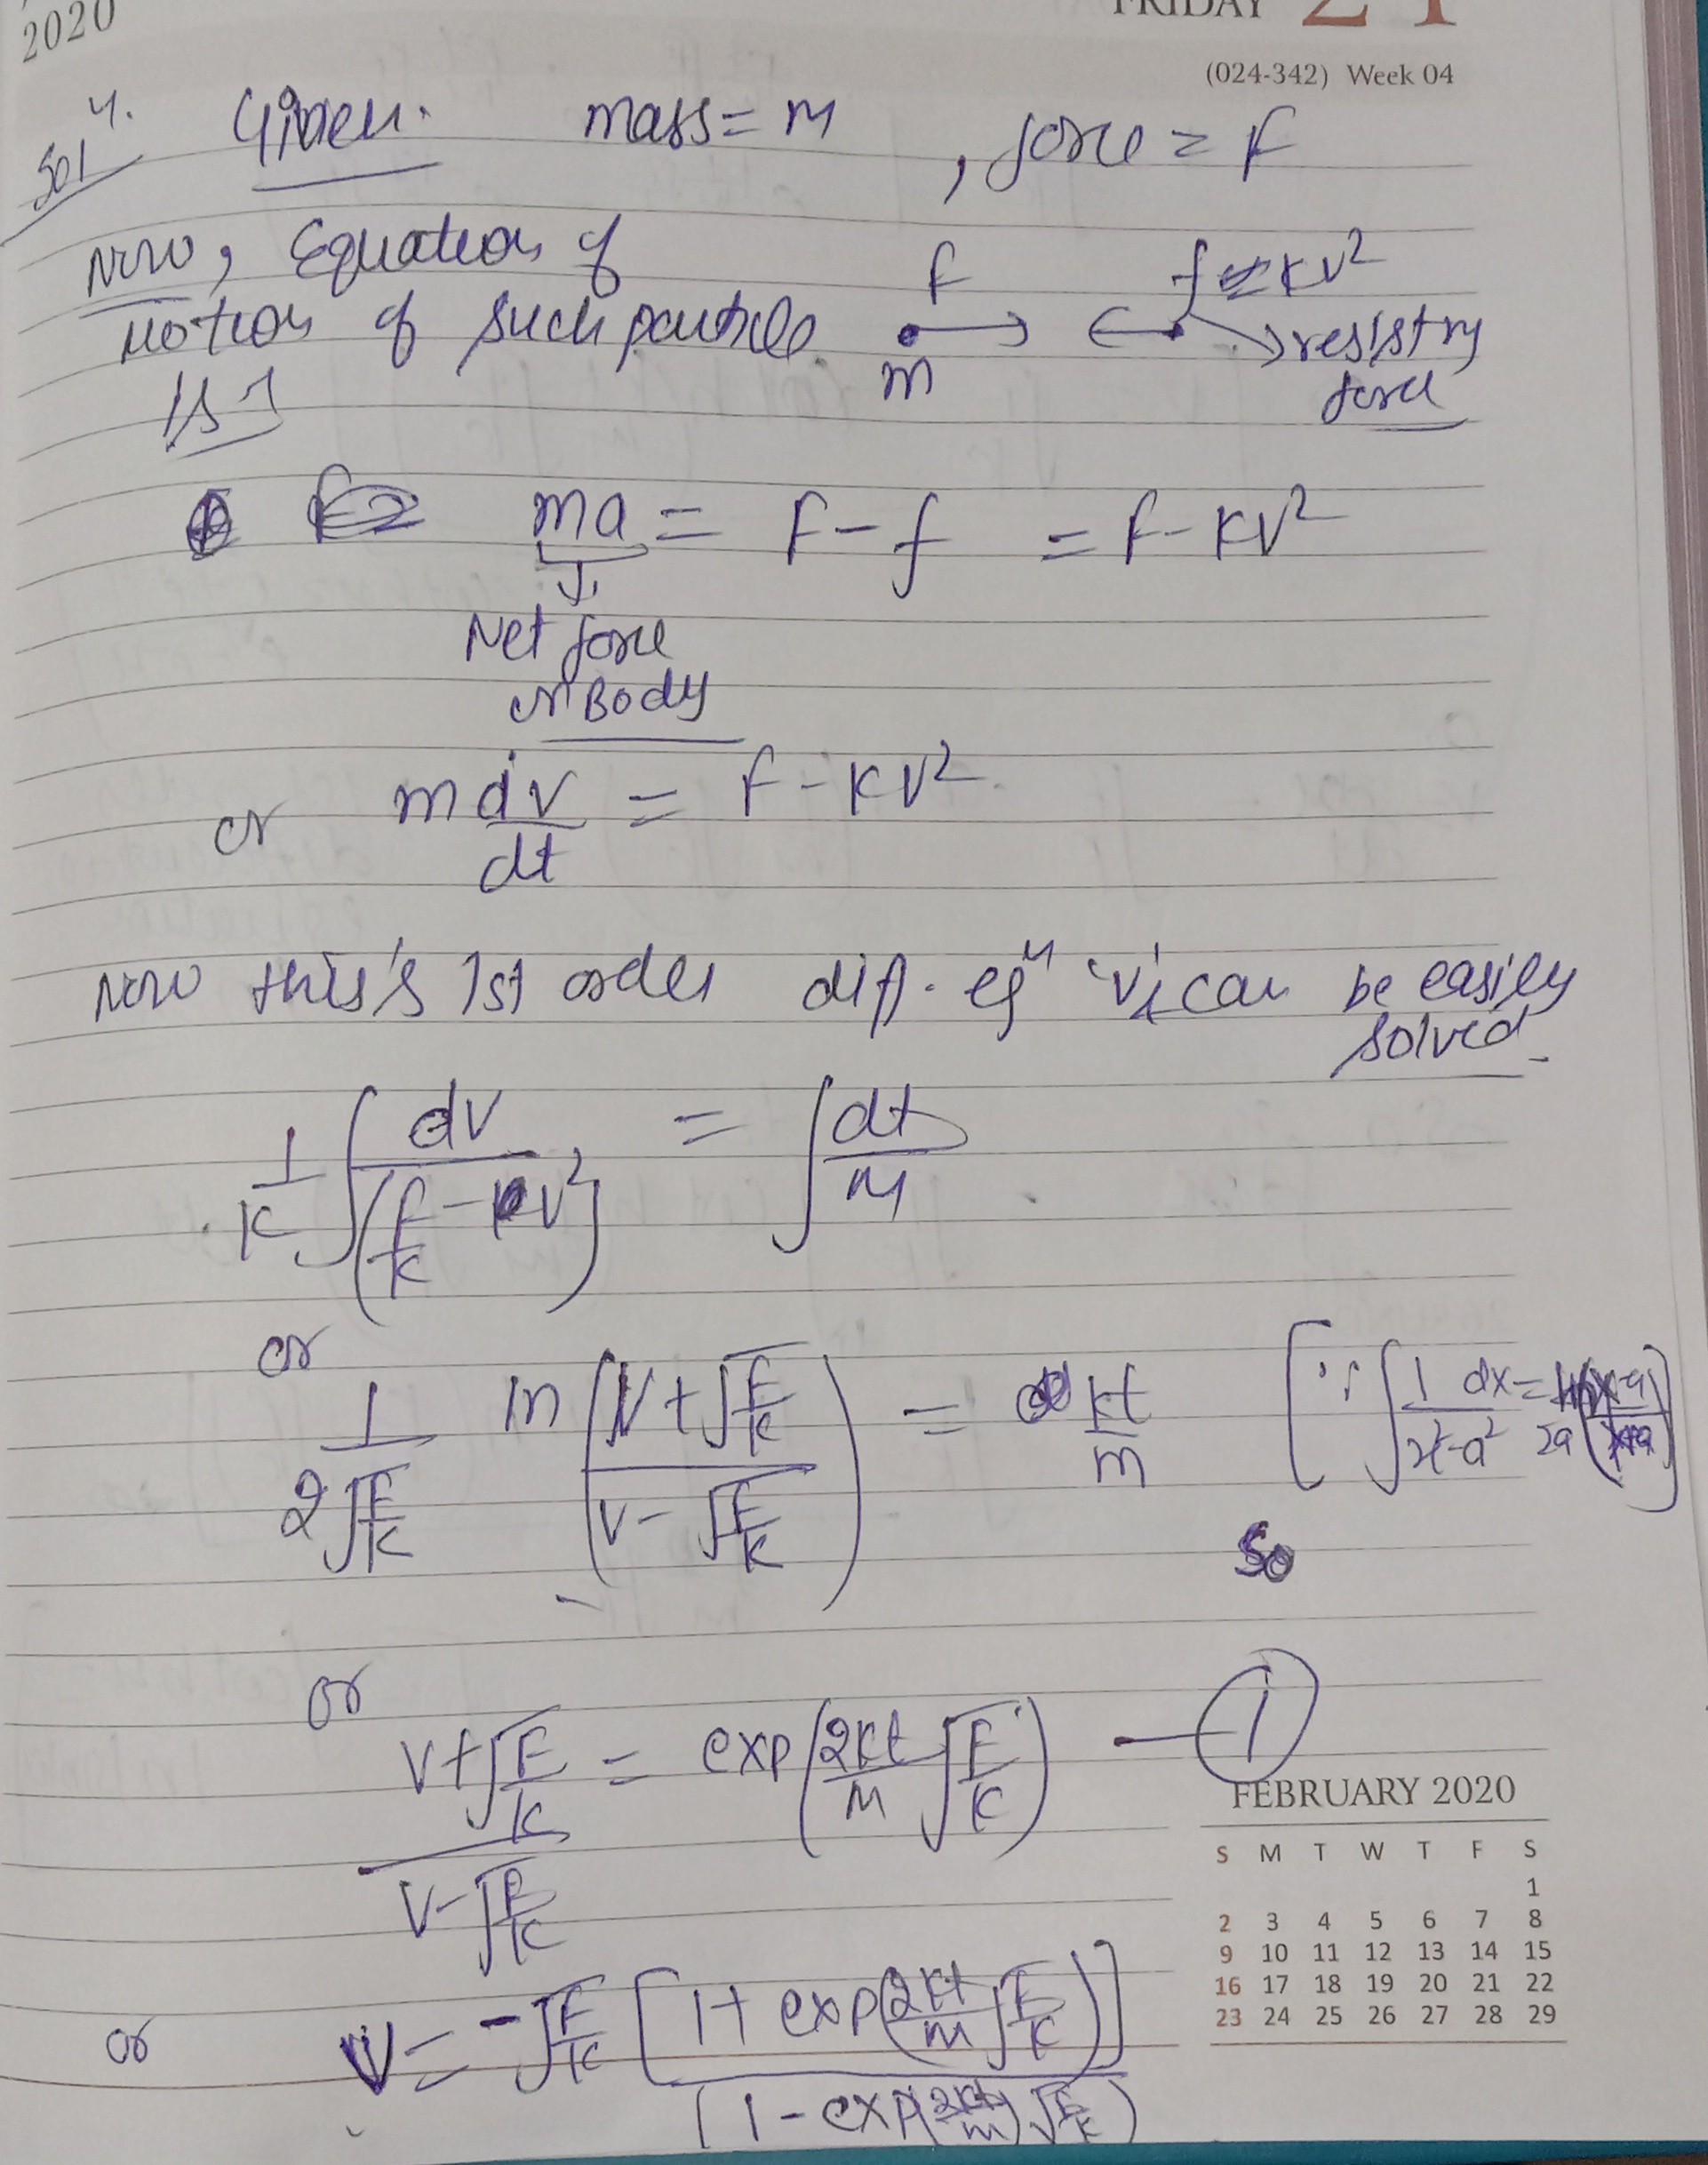 2020
FRIDAY 24
(024-342) Week 04
Sol 4. Given. mass = m , force = F
Now, Equation of
Motion of such particle is →
F
m
f = kv²
resistry force
ma = F - f = F - kv²
Net force
on Body
or m dv/dt = F - kv²
Now this is 1st order diff. eqⁿ 'v' can be easily
solved
1/k ∫ dv/(F/k - v²) = ∫ dt/m
or
1/(2√(F/k)) ln((v + √(F/k))/(v - √(F/k))) = kt/m [∵ ∫ 1/(x²-a²) dx = 1/2a (x-a)/(x+a)]
So
or
(v + √(F/k))/(v - √(F/k)) = exp(2kt/m √(F/k)) — (1)
or v = -√(F/k) [1 + exp(2kt/m √(F/k))]/(1 - exp(2kt/m) √(F/k))
FEBRUARY 2020
S M T W T F S
1
2 3 4 5 6 7 8
9 10 11 12 13 14 15
16 17 18 19 20 21 22
23 24 25 26 27 28 29